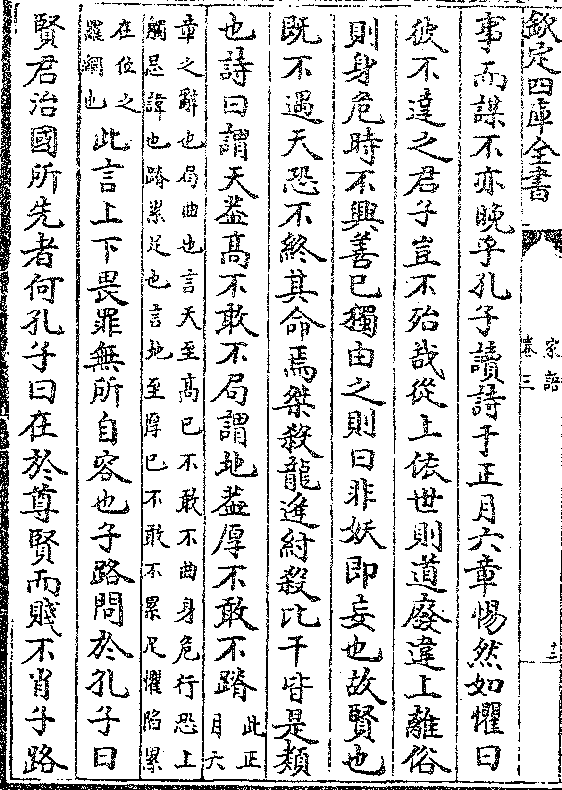 欽定四庫全書
家語
卷三
十三
事而謀不亦晚乎孔子讀詩于正月六章惕然如懼曰
彼不達之君子豈不殆哉從上依世則道廢違上離俗
則身危時不興善己獨由之則曰非妖即妄也故賢也
既不遇天恐不終其命焉桀殺龍逄紂殺比干皆是類
也詩曰謂天葢髙不敢不局謂地葢厚不敢不蹐此正
月六
章之辭也局曲也言天至髙已不敢不曲身危行恐上
觸忌諱也蹐累足也言地至厚已不敢不累足懼陷累
在位之
羅網也
此言上下畏罪無所自容也子路問於孔子曰
賢君治國所先者何孔子曰在於尊賢而賤不肖子路